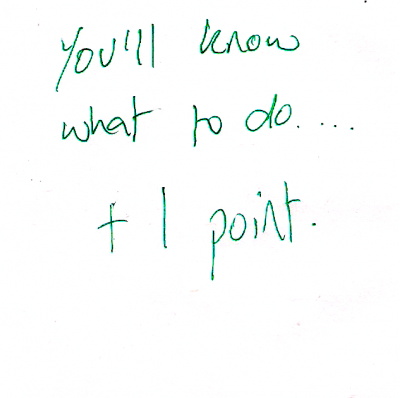 You'll know
what to do....
+ 1 point.